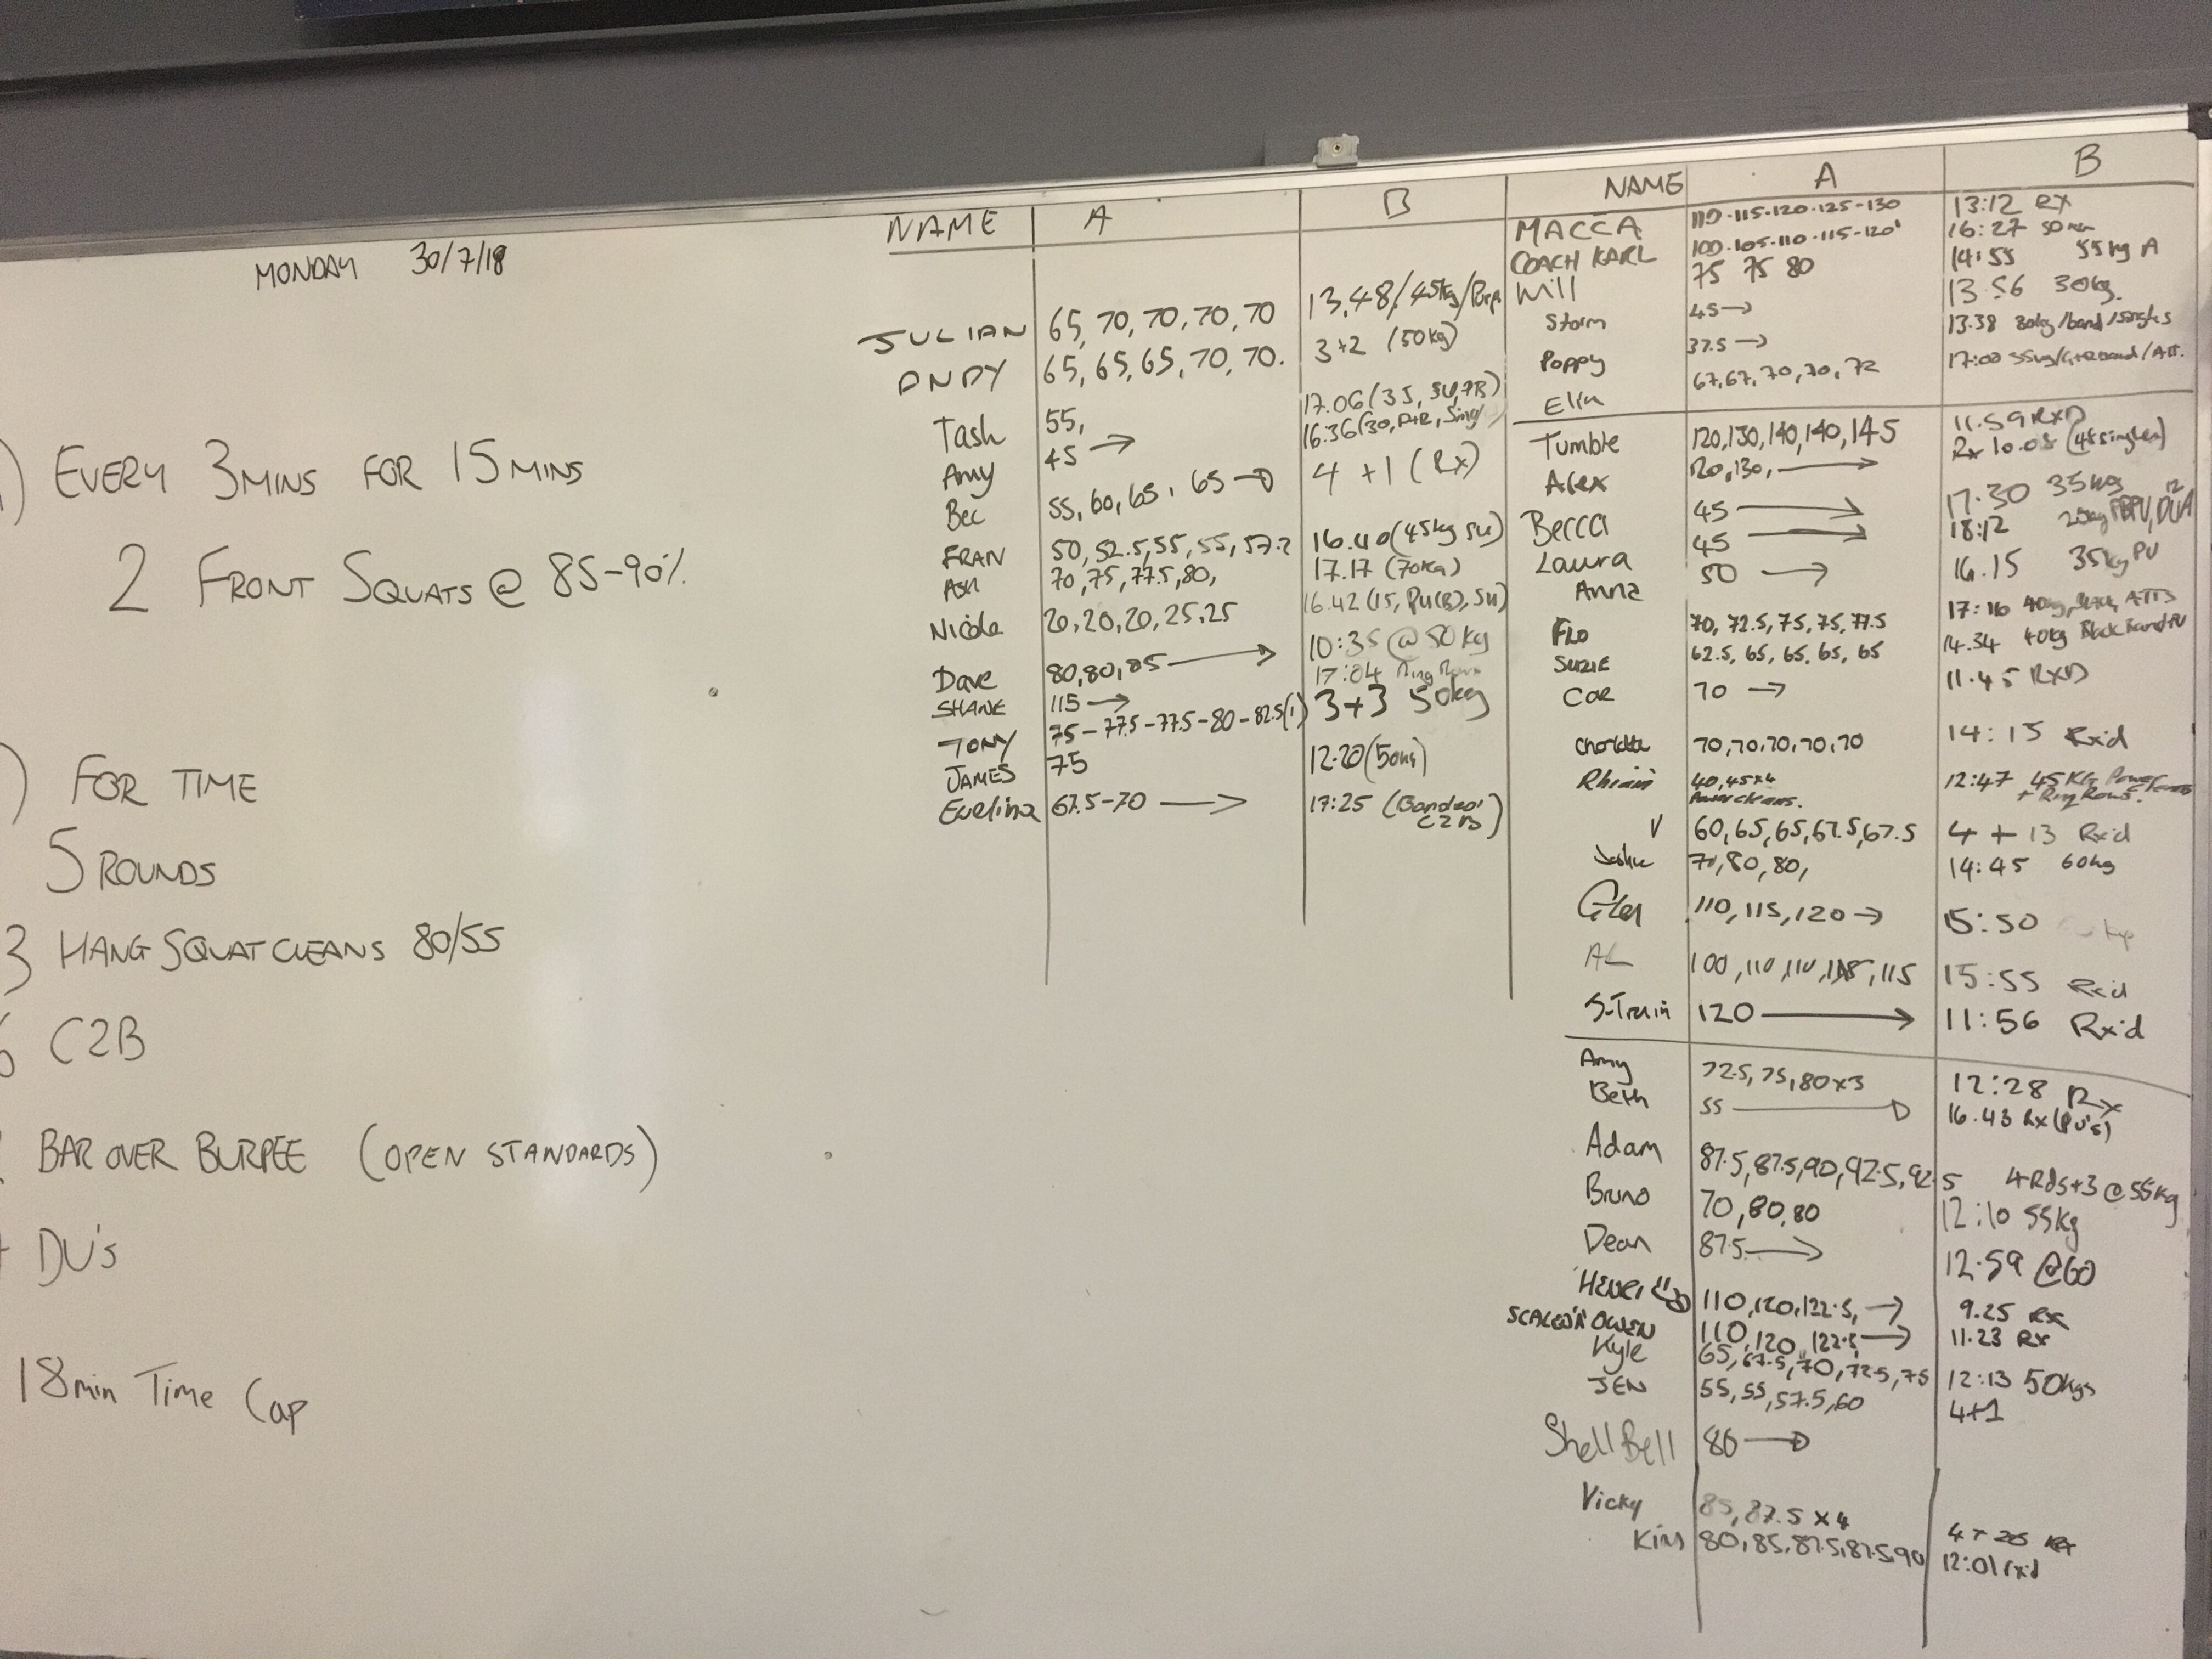 MONDAY 30/7/18
) EVERY 3MINS FOR 15MINS
2 FRONT SQUATS @ 85-90%
) FOR TIME
5 ROUNDS
3 HANG SQUAT CLEANS 80/55
C2B
BAR OVER BURPEE (OPEN STANDARDS)
DU's
18min Time Cap
NAME A B
JULIAN 65, 70, 70, 70, 70 13.48/45kg/Purp
ANDY 65, 65, 65, 70, 70. 3+2 (50kg)
Tash 55, 17.06(35, SU, PB)
Amy 45 → 16.36(30, Sing
Bec 55, 60, 65, 65 → 4 +1 (Rx)
FRAN 50, 52.5, 55, 55, 57.2 16.40(45kg SU)
ASH 70, 75, 77.5, 80, 17.17 (70kg)
Nicola 20, 20, 20, 25, 25 16.42 (15, PU(B), SU)
Dave 80, 80, 85 → 10:35 @ 50kg
SHANE 115 → 17:04 Ring Rows
TONY 75-77.5-77.5-80-82.5(1) 3+3 50kg
JAMES 75 12.20(50kg)
Evelina 67.5-70 → 17:25 (Banded C2B)
NAME A B
MACCA 110-115-120-125-130 13:12 RX
COACH KARL 100-105-110-115-120 16:27
Will 75 75 80 14:55 55kg A
Storm 45 → 13:56 30kg.
Poppy 37.5 → 13.38 30kg/band/singles
Ella 67, 67, 70, 70, 72 17:00
Tumble 120, 130, 140, 140, 145 11.59 RXD
Alex 120, 130, → Rx 10.05 (48 singles)
Becca 45 → 17:30 35kg
Laura 45 → 18:12
Anna 50 → 16.15 35kg PU
Flo 70, 72.5, 75, 75, 77.5 17:16 40kg, ATTS
SUZIE 62.5, 65, 65, 65, 65 14.34 40kg Black Band PU
Car 70 → 11.45 RXD
Charlotte 70, 70, 70, 70, 70 14:15 Rx'd
Rhian 40, 45x4 Power cleans. 12:47 45KG Power Cleans + Ring Rows.
V 60, 65, 65, 67.5, 67.5 4 + 13 Rx'd
70, 80, 80, 14:45 60kg
Glen 110, 115, 120 → 15:50
AL 100, 110, 110, 115, 115 15:55 Rx'd
S-Train 120 → 11:56 Rx'd
Amy 72.5, 75, 80x3 12:28 Rx
Beth 55 → 16.43 Rx (PU's)
Adam 87.5, 87.5, 90, 92.5, 92.5 4Rds+3 @ 55kg
Bruno 70, 80, 80 12:10 55kg
Dean 87.5 → 12.59 @60
HENRI 110, 120, 122.5, → 9.25 RX
SCALED'N OWEN 110, 120, 122.5 → 11.23 RX
Kyle 65, 67.5, 70, 72.5, 75 12:13 50kgs
JEN 55, 55, 57.5, 60 4+1
Shell Bell 80 →
Vicky 85, 87.5 x 4
Kim 80, 85, 87.5, 87.5, 90 12:01 rx'd